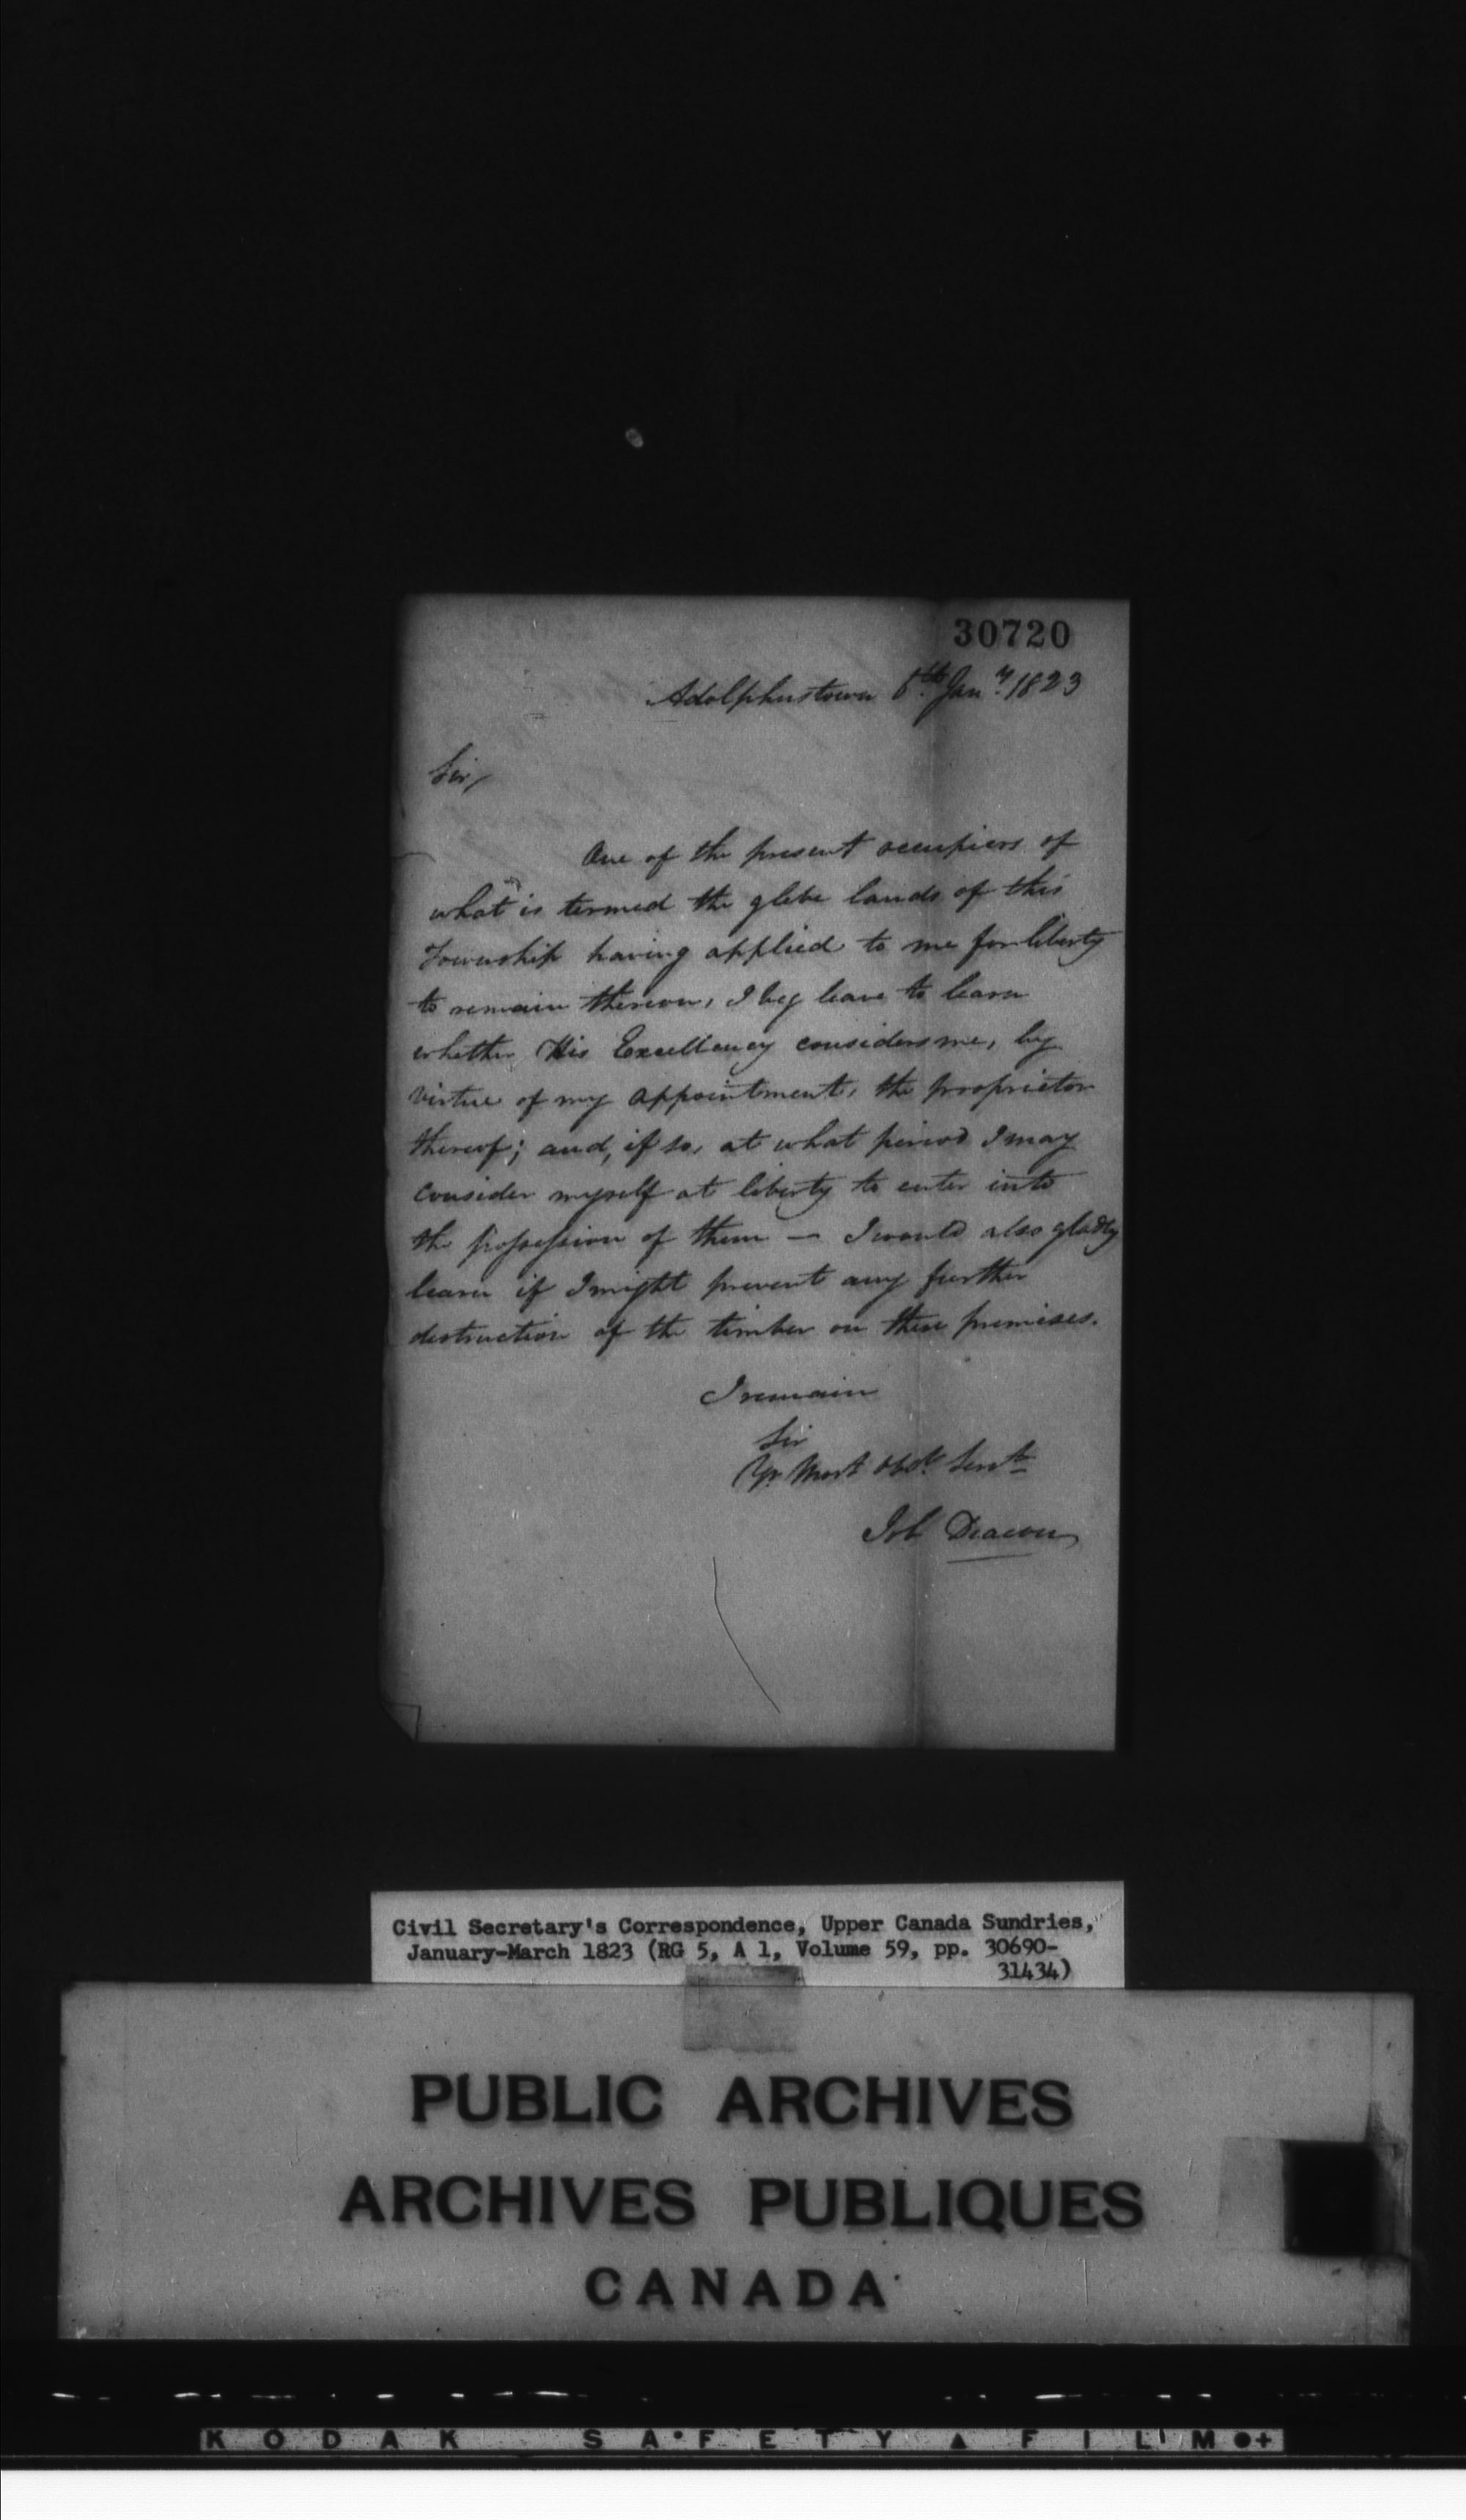 30720
Adolphustown 6th. Jany. 1823
Sir,
One of the present occupiers of
what is termed the glebe lands of this
Township having applied to me for liberty
to remain thereon, I beg leave to learn
whether His Excellency considers me, by
virtue of my appointment, the proprietor
thereof; and, if so, at what period I may
consider myself at liberty to enter into
the possession of them — I would also gladly
learn if I might prevent any further
destruction of the timber on these premises.
I remain
Sir
Yr. Most obdt. Servt.
Job Deacon
Civil Secretary's Correspondence, Upper Canada Sundries,
January-March 1823 (RG 5, A 1, Volume 59, pp. 30690-
31434)
PUBLIC ARCHIVES
ARCHIVES PUBLIQUES
CANADA
KODAK SAFETY FILM